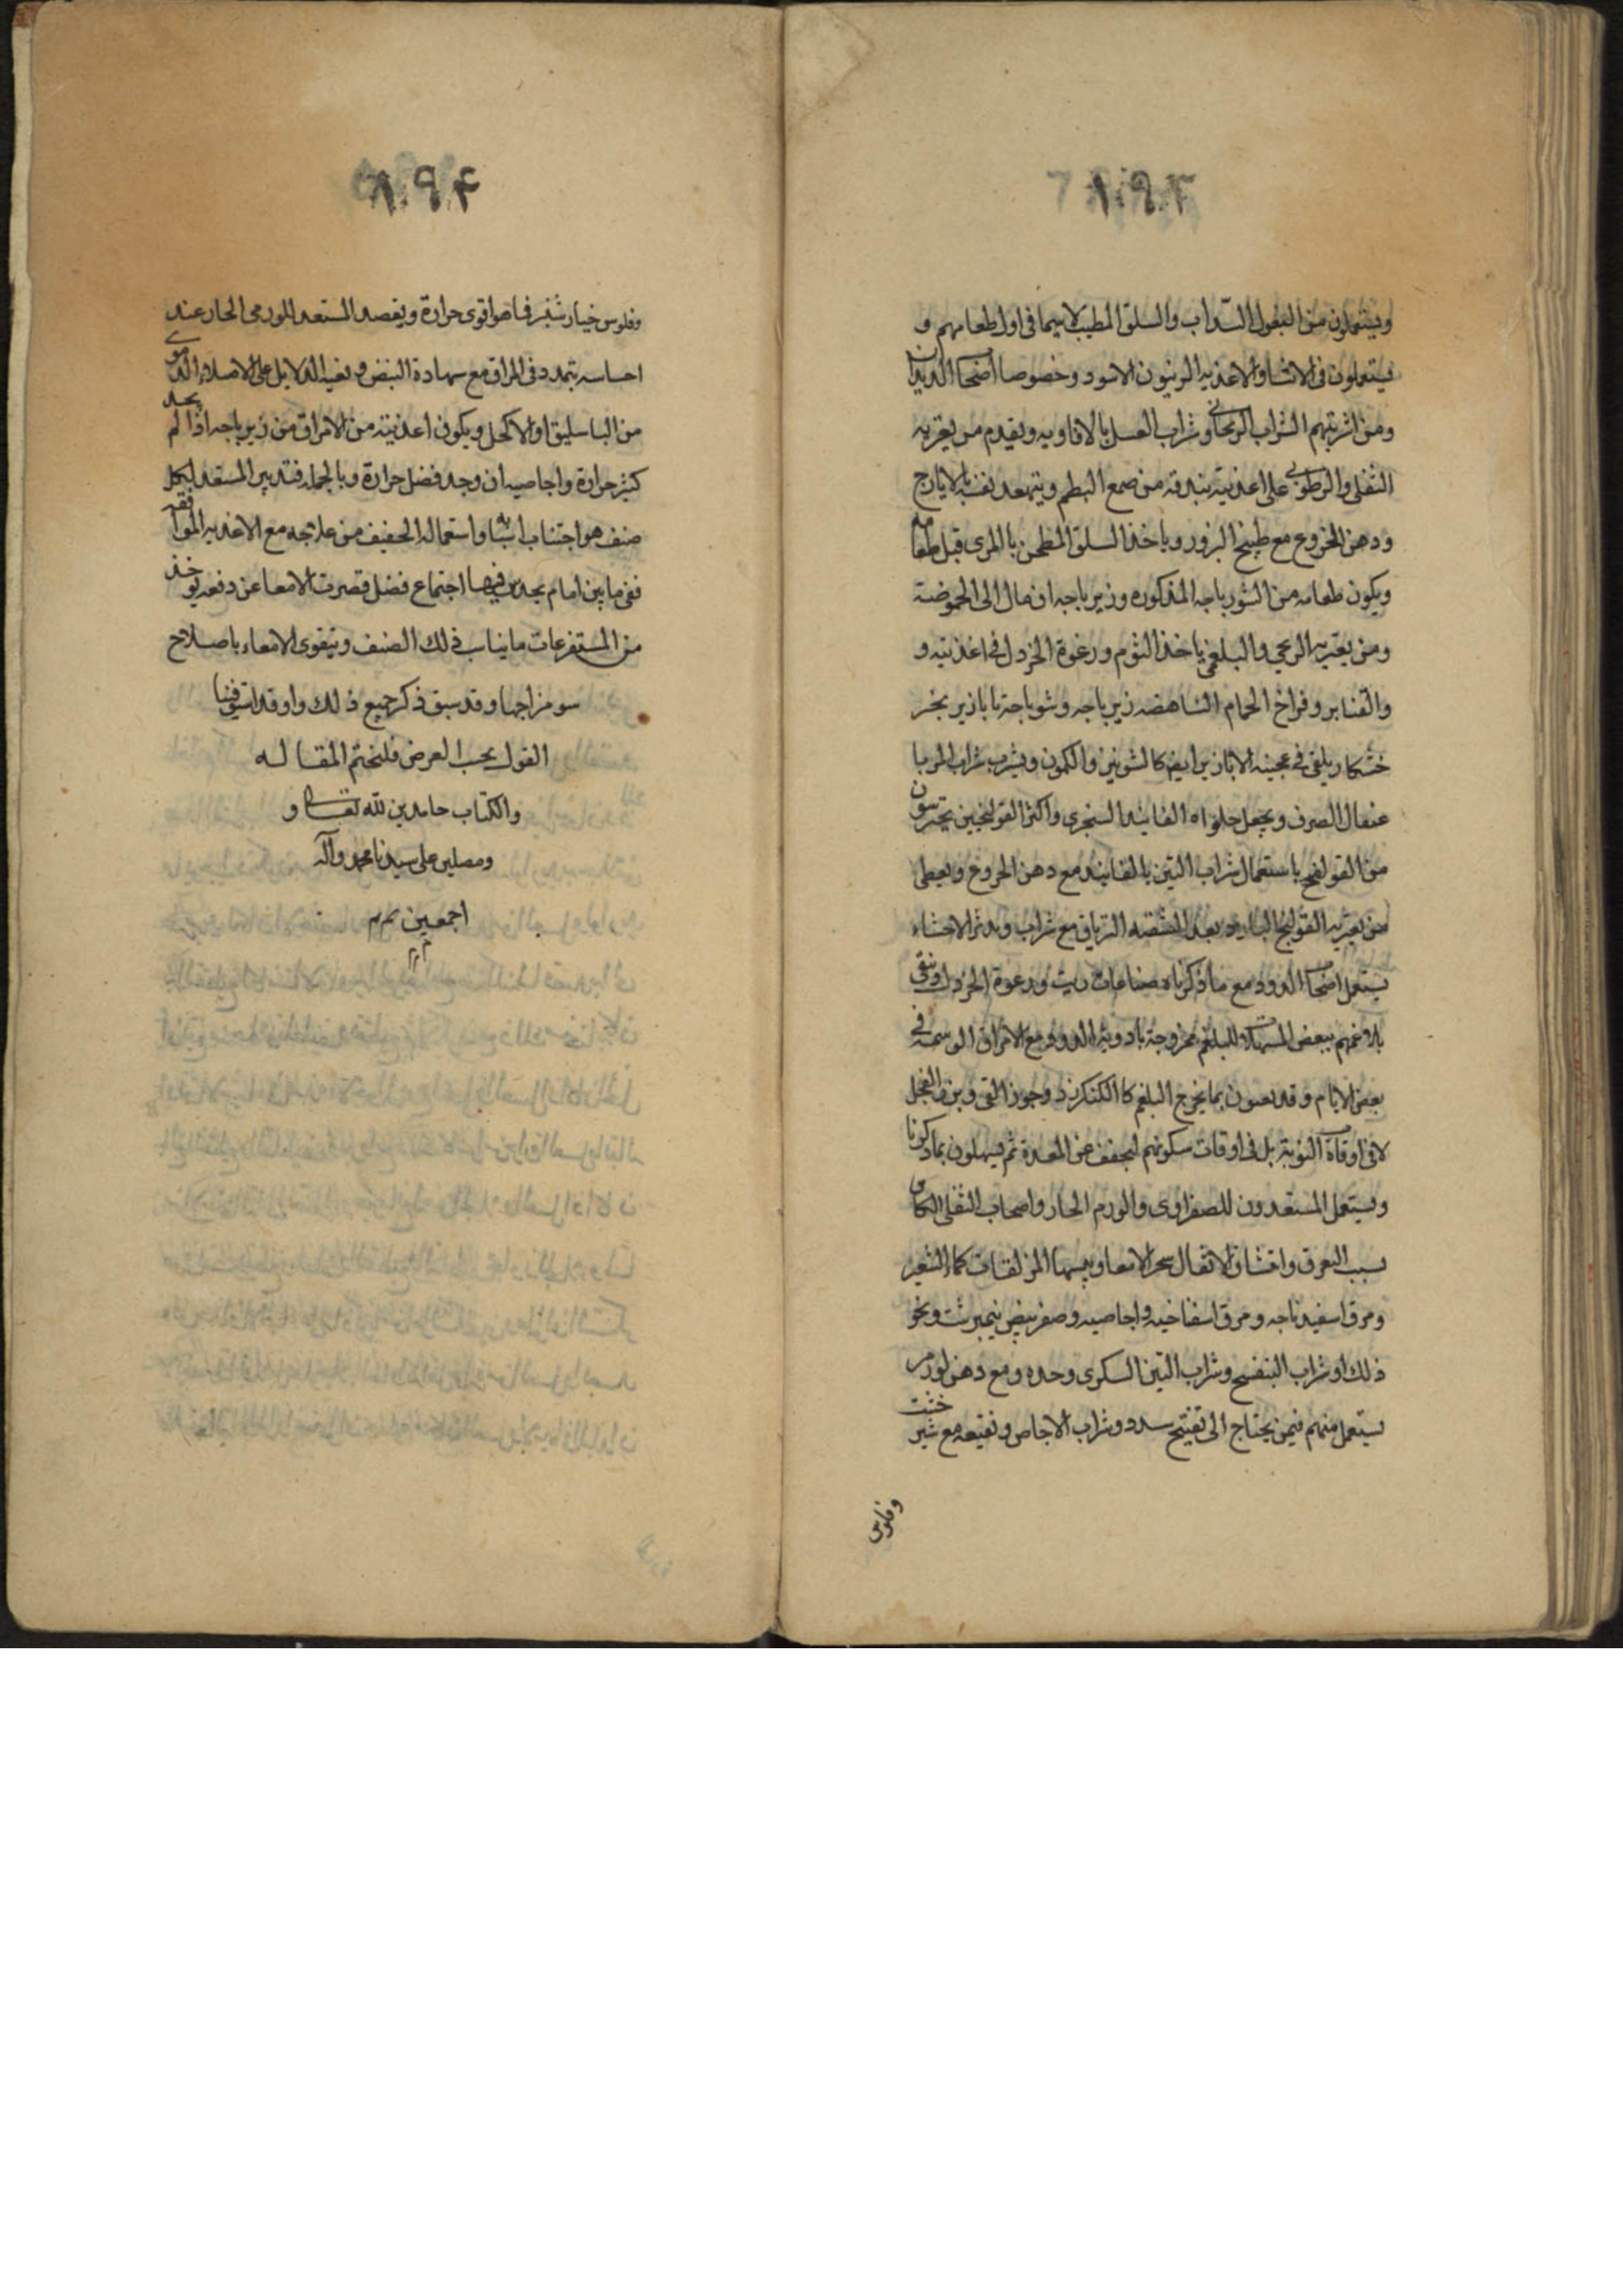 ١٩٣
ويستعملون من البقول السداب والسلق المطيب لاسيما في اول طعامهم و
يستعملون في الاغذيه الزيتون الاسود وخصوصا اصحاب الديدان
ومن اشربتهم الشراب الريحاني وشراب العسل بالافاويه ويقدم من يعتريه
الثفلي والرطوبي على اغذيته بندقه من صمع البطم ويتعهد نفسه بالايارج
ودهن الخروع مع طبيخ البزور وياخذ السلق المطجن بالمري قبل طعامه
ويكون طعامه من الشورباجه المذكوره وزيرباجه ان مال الى الحموضة
ومن يعتريه الريحي والبلغمي ياخذ الثوم ورغوة الخردل في اغذيته و
والقنابر وفراخ الحمام الناهضه زيرباجه وشورباجة بابازير بخبز
خشكار يلقى في عجينه الابازير ايضا كالشونيز والكمون ويشرب شراب
الصرف ويجعل حلواه الفانيد السنجري واكثر القولنجيين يحترسون
من القولنج باستعمال شراب التين بالفانيد مع دهن الخروع ويعطى
من يعتريه القولنج البارد بعد الترياق مع شراب
يستعمل اصحاب الدود مع ما ذكرناه ورغوة الخردل وينقى
بلاغمهم ببعض المسهلات للبلغم ممزوجة بادوية الدود مع الامراق الدسمة في
بعض الايام وقد بما يخرج البلغم كالكنكرزد وجوز القى وبزر الفجل
لا في اوقات النوبة بل في اوقات سكونهم ليجفف عن المعدة ثم يسهلون بما ذكرنا
ويستعمل المستعدون للصفراوى والورم الحار واصحاب الثفلي الكاين
بسبب التعرق وانتشاف الاثفال بحر الامعا ويبسها المزلقات كماء الشعير
ومرق اسفيدباجه ومرق اسفاخيه واجاصيه وصفر بيض نيمبرشت ونحو
ذلك او شراب البنفسج وشراب التين السكرى وحده ومع دهن لوز مر
يستعمل منهم فيمن يحتاج الى تفتيح سدد وشراب الاجاص ونقيعه مع شيرخشت
وفلوس
١٩٤
وفلوس خيارشنبر فما هو اقوى حرارة ويفصد المستعد للورمي الحار عند
احساسه بتمدد في المراق مع شهادة النبض وبقية الدلايل على الامتلاء الدموي
من الباسليق او الاكحل ويكون اغذيته من الامراق من زيرباجه اذا لم يجد
كثير حرارة واجاصيه ان وجد فضل حرارة وبالجمله فتدبير المستعد لكل
صنف هو اجتناب اسبابه واستعماله الخفيف من علاجه مع الاغذيه الموافقه
ففي ما بين ايام يحدس فيها اجتماع فضل قصرت الامعا عن دفعه يوخذ
من المستفرغات ما يناسب ذلك الصنف ويتقوى الامعاء باصلاح
سو مزاجها وقد سبق ذكر جميع ذلك واذ قد استوفينا
القول بحسب الغرض فلنختم المقاله
والكتاب حامدين لله تعالى و
ومصلين على سيدنا محمد وآله
اجمعين